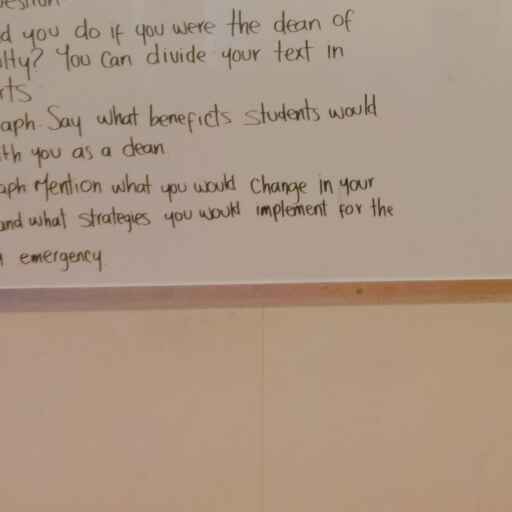 d you do if you were the dean of
lty? You can divide your text in
rts
aph. Say what beneficts students would
th you as a dean
aph Mention what you would change in your
and what strategies you would implement for the
emergency